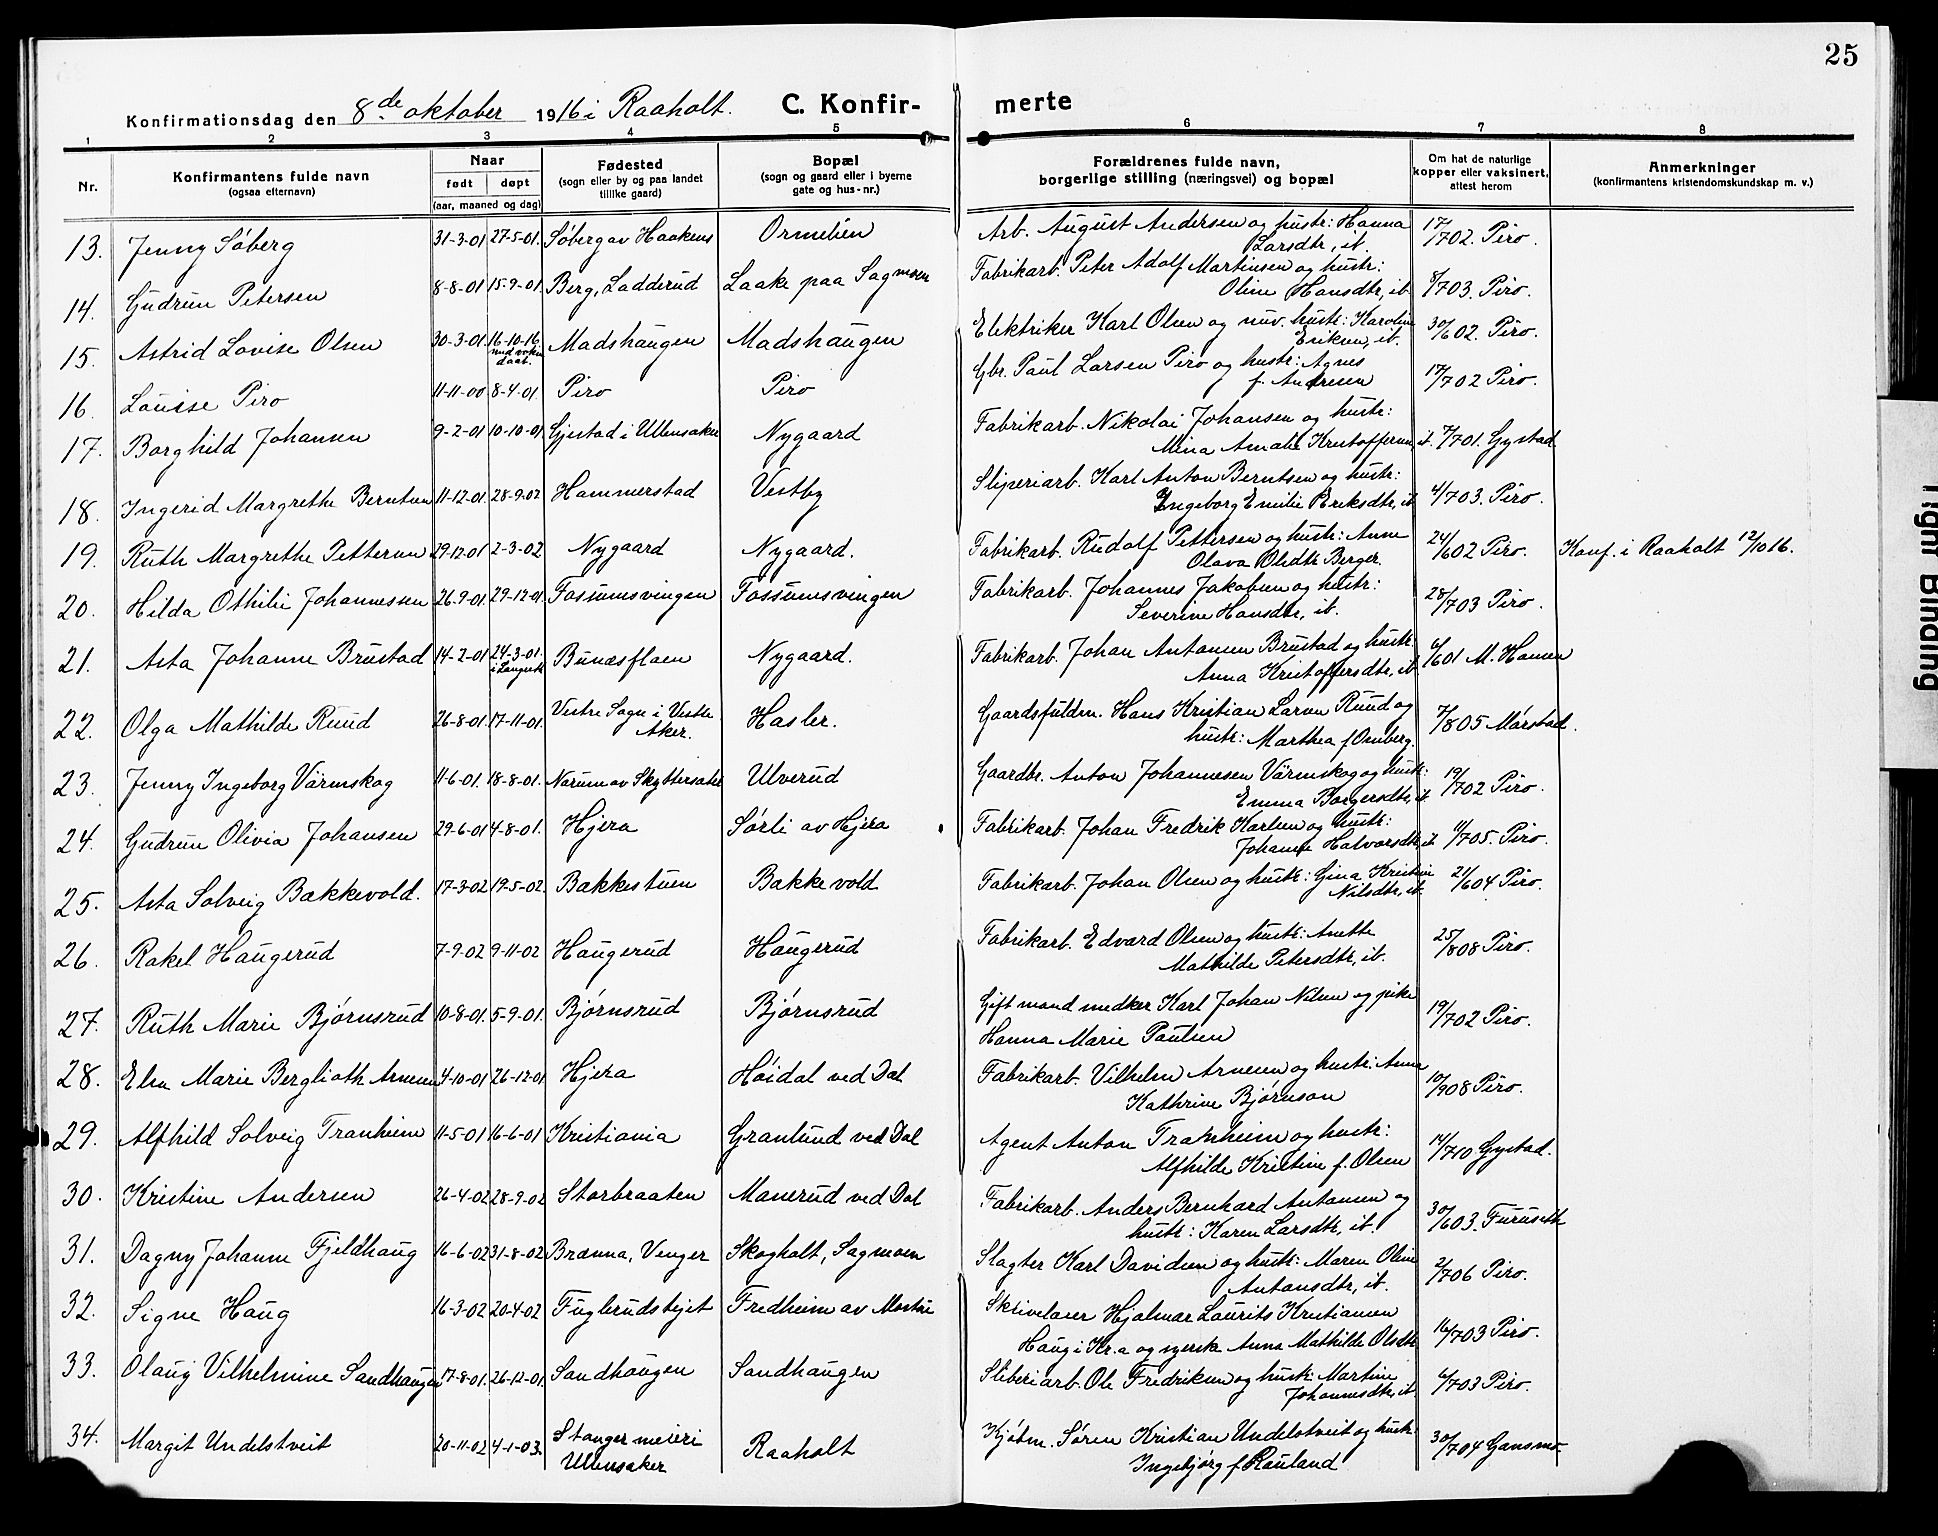 25
Konfirmationsdag den 8de oktober 1916 i Raaholt. C. Konfir- merte
1 2 3 4 5 6 7 8
Nr. Konfirmantens fulde navn (ogsaa efternavn) Naar født døpt (aar, maaned og dag) Fødested (sogn eller by og paa landet tillike gaard) Bopæl (sogn og gaard eller i byerne gate og hus-nr.) Forældrenes fulde navn, borgerlige stilling (næringsvei) og bopæl Om hat de naturlige kopper eller vaksinert, attest herom Anmerkninger (konfirmantens kristendomskundskap m. v.)
13. Jenny Söberg 31-3-01 27-5-01. Söberg av Haakens Ormelien Arb. August Andersen og hustr: Hanna Larsdtr, ib. 17/702. Piro.
14. Gudrun Petersen 8-8-01 15-9-01. Berg, Ladderud Laake paa Sagmoen Fabrikarb. Peter Adolf Martinsen og hustr: Oline Hansdtr, ib 8/703. Piro.
15. Astrid Lovise Olsen 30-3-01 16-10-16 Madshaugen Madshaugen Elektriker Karl Olsen og nuv. hustr: Karoline Eriksen, ib. 30/602. Piro.
16. Louise Piro 11-11-00 8-4-01. Piro Piro Gbr. Paul Larsen Piro og hustr: Agnes f. Andresen 17/702 Piro.
17. Borghild Johansen 9-2-01 10-10-01 Gjestad i Ullensaker Nygaard Fabrikarb. Nikolai Johansen og hustr: Mina Amalie Kristoffersen, ib. 7/701. Gystad
18. Ingerid Margrethe Berntsen 11-12-01 28-9-02 Hammerstad Vestby Sliperiarb. Karl Anton Berntsen og hustr: Ingeborg Emilie Eriksdtr, ib 4/703. Piro.
19. Ruth Margrethe Pettersen 29-12-01 2-3-02 Nygaard Nygaard. Fabrikarb. Rudolf Pettersen og hustr: Anne Olava Olsdtr Berger. 24/602 Piro. Konf. i Raaholt 12/10 16.
20. Hilda Othilie Johannessen 26-9-01. 29-12-01. Fossumsvingen Fossumsvingen Fabrikarb. Johannes Jakobsen og hustr: Severine Hansdtr, ib. 28/703 Piro.
21. Asta Johanne Brustad 14-2-01 24-3-01. Bunæsflaen Nygaard. Fabrikarb. Johan Antonsen Brustad og hustr: Anna Kristoffersdtr, ib. 6/601 M. Hansen
22. Olga Mathilde Ruud 26-8-01. 17-11-01. Vestre Sogn i Vestre Aker. Hasler. Gaardsfuldm. Hans Kristian Larsen Ruud og hustr: Marthea f. Ornberg. 7/805 Mørstad.
23. Jenny Ingeborg Värmskog 11-6-01. 18-8-01. Norum av Skyttersater Ulverud Gaardbr. Anton Johannesen Värmskog og hustr: Emma Borgersdtr, ib. 19/702 Piro.
24. Gudrun Olivia Johansen 29-6-01 4-8-01. Hjera Sørli av Hjera Fabrikarb. Johan Fredrik Karlsen og hustr: Johanne Halvorsdtr, ib 11/705. Piro.
25. Asta Solveig Bakkevold. 17-3-02 19-5-02. Bakkestuen Bakkevold Fabrikarb. Johan Olsen og hustr: Gina Kristine Nilsdtr, ib. 21/604 Piro.
26. Rakel Haugerud 7-9-02 9-11-02 Haugerud Haugerud Fabrikarb. Edvard Olsen og hustr: Anette Mathilde Petersdtr, ib. 25/808 Piro.
27. Ruth Marie Bjørnsrud 10-8-01. 5-9-01. Bjørnsrud Bjørnsrud Gift mand snedker Karl Johan Nilsen og pike Hanna Marie Paulsen 19/702 Piro.
28. Elsa Marie Berglioth Arnesen 4-10-01 26-12-01 Hjera Høidal ved Dal Fabrikarb. Vilhelm Arnesen og hustr: Anna Kathrine Bjørnson 10/908 Piro.
29. Alfhild Solveig Tranheim 11-5-01 16-6-01 Kristiania Granlund ved Dal Agent Anton Tranheim og hustr: Alfhilde Kristine f. Olsen 14/710 Gystad.
30. Kristine Andersen 26-4-02 28-9-02 Storbraaten Manerud ved Dal Fabrikarb. Anders Bernhard Antonsen og hustr: Karen Larsdtr, ib. 30/603. Furuseth
31. Dagny Johanne Fjeldhaug 16-6-02 31-8-02 Brænna, Venger Skogholt, Sagmoen Slagter Karl Davidsen og hustr: Maren Oline Antonsdtr, ib. 2/706 Piro.
32. Signe Haug 16-3-02 20-4-02 Fuglerudsteiet Fredheim av Mostue Skrivelærer Hjalmar Laurits Kristiansen Haug i Kr.a og syerske Anna Mathilde Olsdtr 16/703 Piro.
33. Olaug Vilhelmine Sandhaugen 17-8-01. 26-12-01. Sandhaugen Sandhaugen Sliberiarb. Ole Fredriksen og hustr: Martine Johannesdtr, ib. 6/703 Piro.
34. Margit Undelstveit 20-11-02 4-1-03. Stanger meieri Ullensaker Raaholt Kjøbm. Søren Kristian Undelstveit og hustr: Ingebjørg f. Rauland 30/704 Gansmo.
Tight Binding